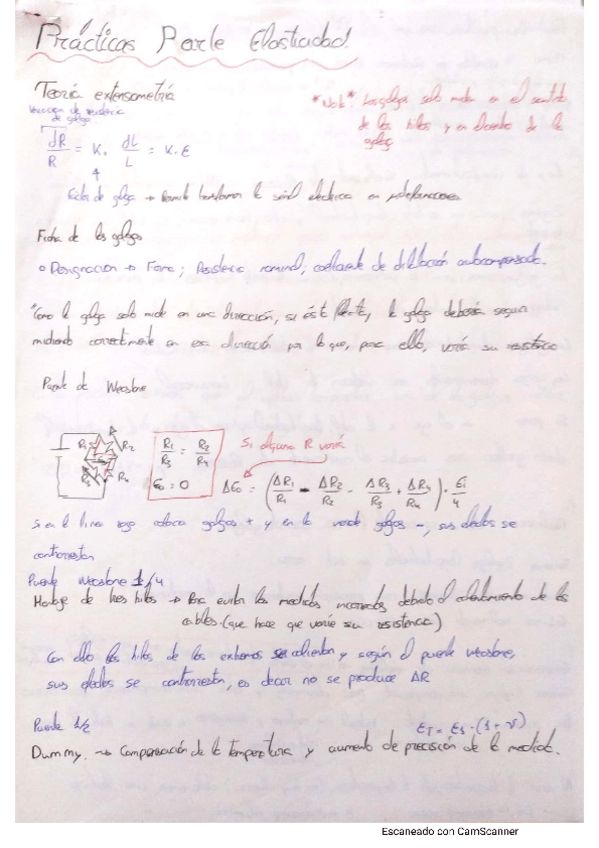 Prácticas Parte Elasticidad!
Teoría extensometría
Variación de resistencia
de galga
*Nota*: Las galgas solo miden en el sentido
de los hilos y en el centro de la
galga
dR/R = K · dL/L = K·ε
Factor de galga → Permite transformar la señal eléctrica en μdeformaciones
Ficha de las galgas
o Designación → Forma; Resistencia nominal, coeficiente de dilatación autocompensado.
*Como la galga solo mide en una dirección, si ésta, la galga deberá seguir
midiendo correctamente en esa dirección por lo que, para ello, varía su resistencia
Puente de Weasbre
R1 R2 R3 R4
R1/R3 = R2/R4
E0 = 0
Si alguna R varía
ΔE0 = (ΔR1/R1 - ΔR2/R2 - ΔR3/R3 + ΔR4/R4) · Ei/4
Si en la línea roja coloca galgas + y en la verde galgas -, sus efectos se
contrarrestan
Puente Weasbre 1/4
Montaje de tres hilos → Para evitar las medidas incorrectas debido al calentamiento de los
cables. (que hace que varíe su resistencia)
Con ello los hilos de los extremos se calientan y según el puente weasbre,
sus efectos se contrarrestan, es decir no se produce ΔR
Puente 1/2
εT = εs·(1+ν)
Dummy. → Compensación de la temperatura y aumento de precisión de la medida.
Escaneado con CamScanner